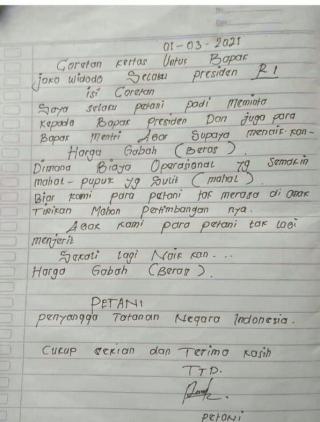 01-03-2021
Coretan kertas Untuk Bapak
Joko Widodo Selaku presiden RI
isi Coretan
Saya selaku petani padi Meminta
kepada Bapak Presiden Dan juga para
Bapak Mentri Agar Supaya menaik kan-
Harga Gabah (Beras)
Dimana Biaya Operasional yg Semakin
mahal - pupuk yg Sulit (mahal)
Biar kami para petani tak merasa di anak
Tirikan Mohon pertimbangan nya.
Agar kami para petani tak lagi
menjerit
Sekali lagi Naik kan...
Harga Gabah (Beras).
PETANI
penyangga Tatanan Negara Indonesia.
Cukup sekian dan Terima kasih
TTD.
PETANI